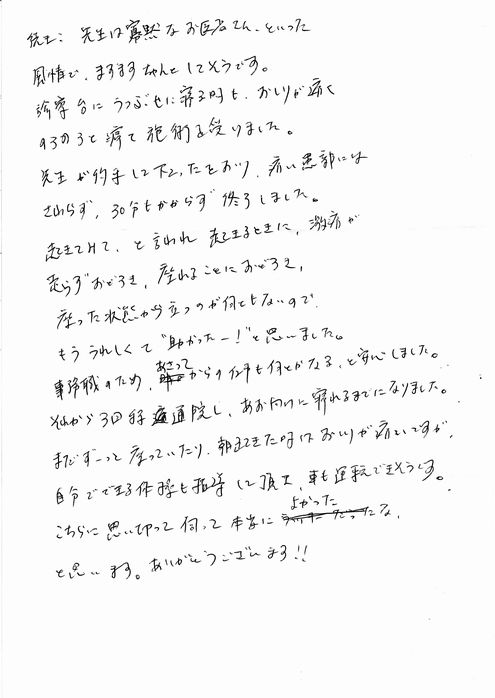 先生は寡黙なお医者さん、といった
風情で、ますますちゃんとしてそうです。
診療台にうつぶせに寝る時も、おしりが痛く
そろそろと寝て施術を受けました。
先生が約束して下さったとおり、痛い患部には
さわらず、30分もかからず終了しました。
起きてみて、と言われ起きるときに、激痛が
走らずおどろき、座れることにおどろき、
座った状態から立つのが何ともないので
もううれしくて"助かったー!"と思いました。
事務職のため、あさってからの仕事も何とかなる、と安心しました。
それから3回程通院し、あお向けに寝れるまでになりました。
まだずーっと座っていたり、朝起きた時はおしりが痛いですが、
自分でできる体操も指導して頂き、車も運転できそうです。
こちらに思い切って伺って本当によかったな、
と思います。ありがとうございます!!